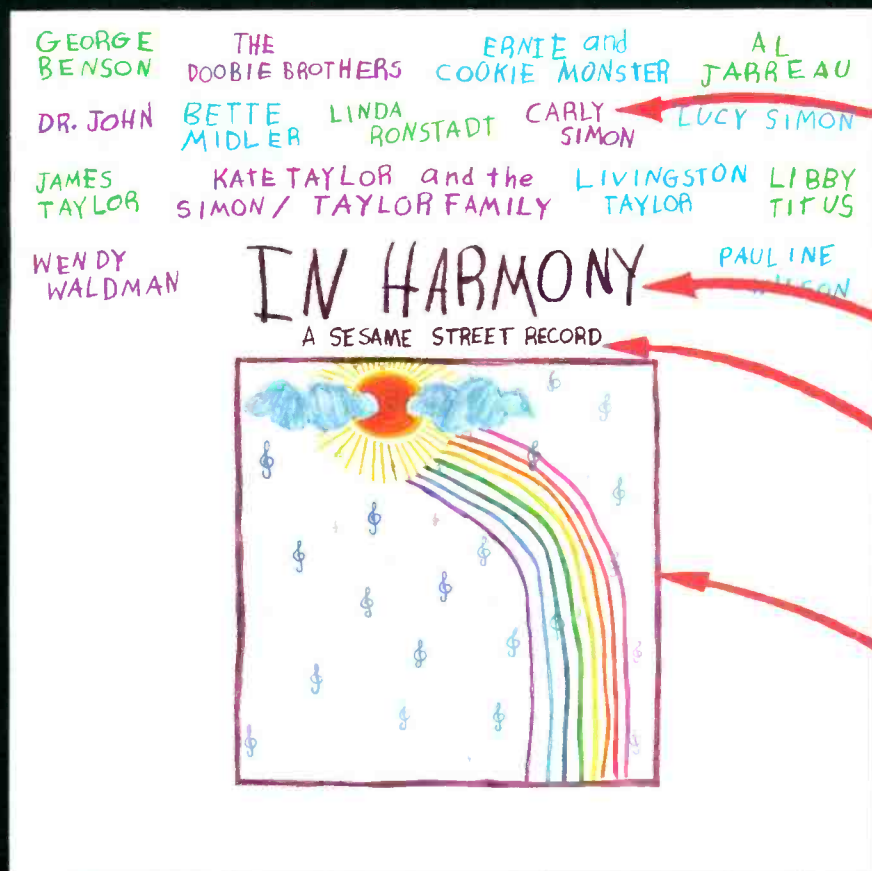 GEORGE BENSON
THE DOOBIE BROTHERS
ERNIE and COOKIE MONSTER
AL JARREAU
DR. JOHN
BETTE MIDLER
LINDA RONSTADT
CARLY SIMON
LUCY SIMON
JAMES TAYLOR
KATE TAYLOR and the
SIMON / TAYLOR FAMILY
LIVINGSTON TAYLOR
LIBBY TITUS
WENDY WALDMAN
PAULINE WILSON
IN HARMONY
A SESAME STREET RECORD